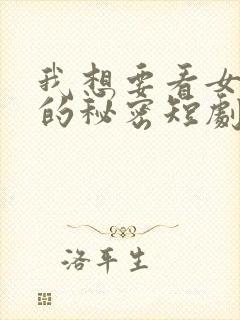 我想要看女
的秘密短劇
洛平生